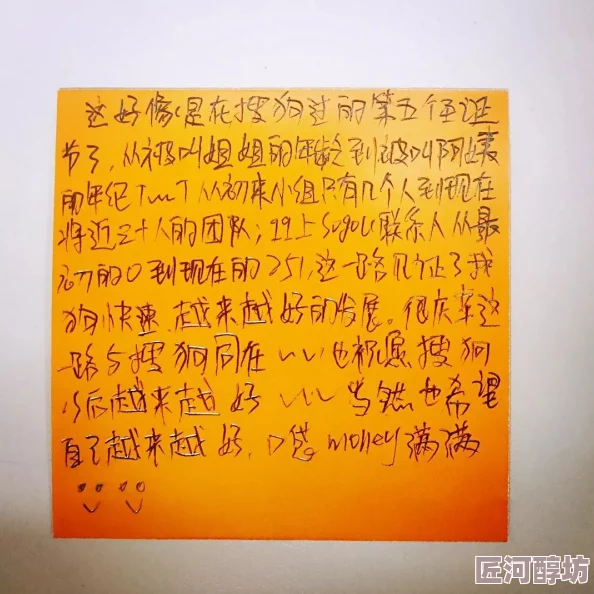 这好像是在搜狗过的第五个圣诞
节了,从被叫姐姐的年龄到被叫阿姨
的年纪TwT从初来小组只有几个人到现在
将近三十人的团队;QQ上Sogou联系人从最
初的0到现在的251,这一路见证了我
狗快速 越来越好的发展。很庆幸这
一路与搜狗同在 ~~也祝愿搜狗
以后越来越好 ~~ 当然也希望
自己越来越好,口袋money满满
匠河醇坊